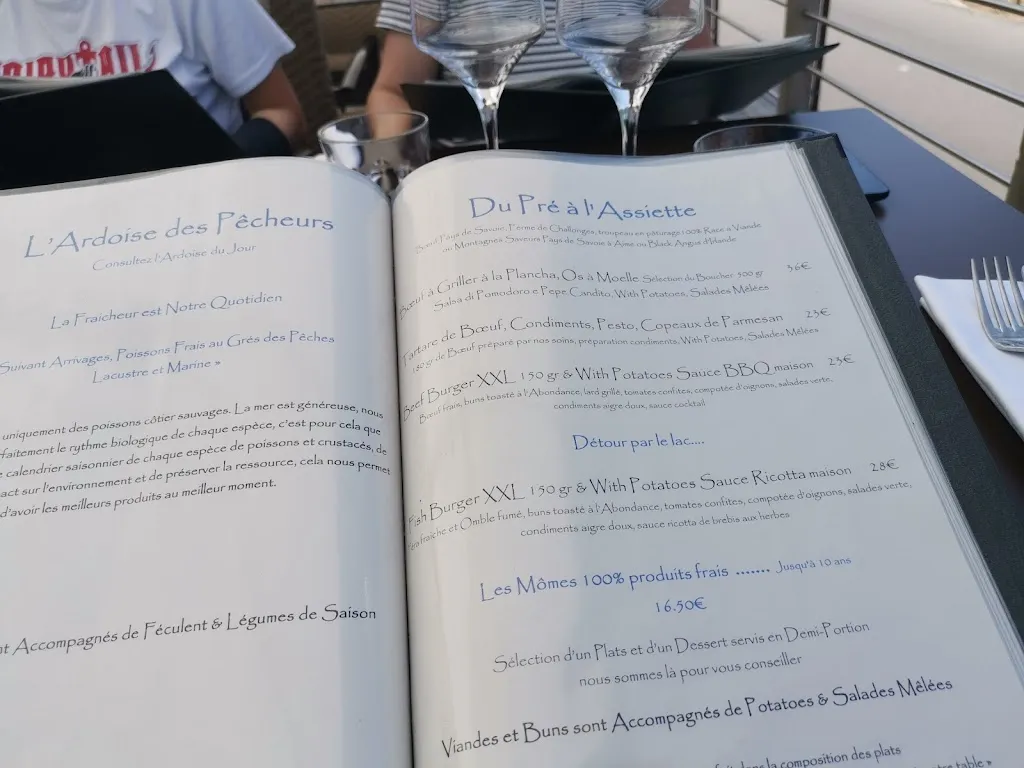 L'Ardoise des Pêcheurs
Consultez l'Ardoise du Jour
La Fraicheur est Notre Quotidien
Suivant Arrivages, Poissons Frais au Grès des Pêches
Lacustre et Marine »
uniquement des poissons côtier sauvages. La mer est généreuse, nous
faitement le rythme biologique de chaque espèce, c'est pour cela que
calendrier saisonnier de chaque espèce de poissons et crustacés, de
act sur l'environnement et de préserver la ressource, cela nous permet
d'avoir les meilleurs produits au meilleur moment.
nt Accompagnés de Féculent & Légumes de Saison
Du Pré à l'Assiette
Bœuf Pays de Savoie, Ferme de Challonges, troupeau en pâturage 100% Race à Viande
ou Montagnes Saveurs Pays de Savoie à Aime ou Black Angus d'Irlande
Bœuf à Griller à la Plancha, Os à Moelle Sélection du Boucher 300 gr 36€
Salsa di Pomodoro e Pepe Candito, With Potatoes, Salades Mêlées
Tartare de Bœuf, Condiments, Pesto, Copeaux de Parmesan 23€
180 gr de Bœuf préparé par nos soins, préparation condiments, With Potatoes, Salades Mêlées
Beef Burger XXL 150 gr & With Potatoes Sauce BBQ maison 23€
Bœuf frais, buns toasté à l'Abondance, lard grillé, tomates confites, compotée d'oignons, salades verte,
condiments aigre doux, sauce cocktail
Détour par le lac....
Fish Burger XXL 150 gr & With Potatoes Sauce Ricotta maison 28€
fraîche et Omble fumé, buns toasté à l'Abondance, tomates confites, compotée d'oignons, salades verte,
condiments aigre doux, sauce ricotta de brebis aux herbes
Les Mômes 100% produits frais ....... Jusqu'à 10 ans
16.50€
Sélection d'un Plats et d'un Dessert servis en Demi-Portion
nous sommes là pour vous conseiller
Viandes et Buns sont Accompagnés de Potatoes & Salades Mêlées
dans la composition des plats
table »